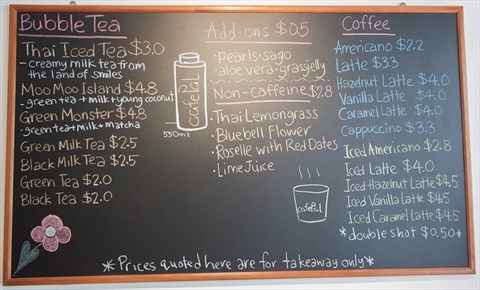 Bubble Tea
Thai Iced Tea $3.0
- creamy milk tea from
the land of smiles
Moo Moo Island $4.8
- green tea + milk + young coconut
Green Monster $4.8
- green tea + milk + matcha
Green Milk Tea $2.5
Black Milk Tea $2.5
Green Tea $2.0
Black Tea $2.0
cafePal
550ml
Add-ons $0.5
• pearls • sago
• aloe vera • grass jelly
Non-caffeine $2.8
• Thai Lemongrass
• Bluebell Flower
• Roselle with Red Dates
• Lime Juice
cafePal
Coffee
Americano $2.2
Latte $3.3
Hazelnut Latte $4.0
Vanilla Latte $4.0
Caramel Latte $4.0
Cappuccino $3.3
Iced Americano $2.8
Iced Latte $4.0
Iced Hazelnut Latte $4.5
Iced Vanilla Latte $4.5
Iced Caramel Latte $4.5
*double shot $0.50*
*Prices quoted here are for takeaway only*